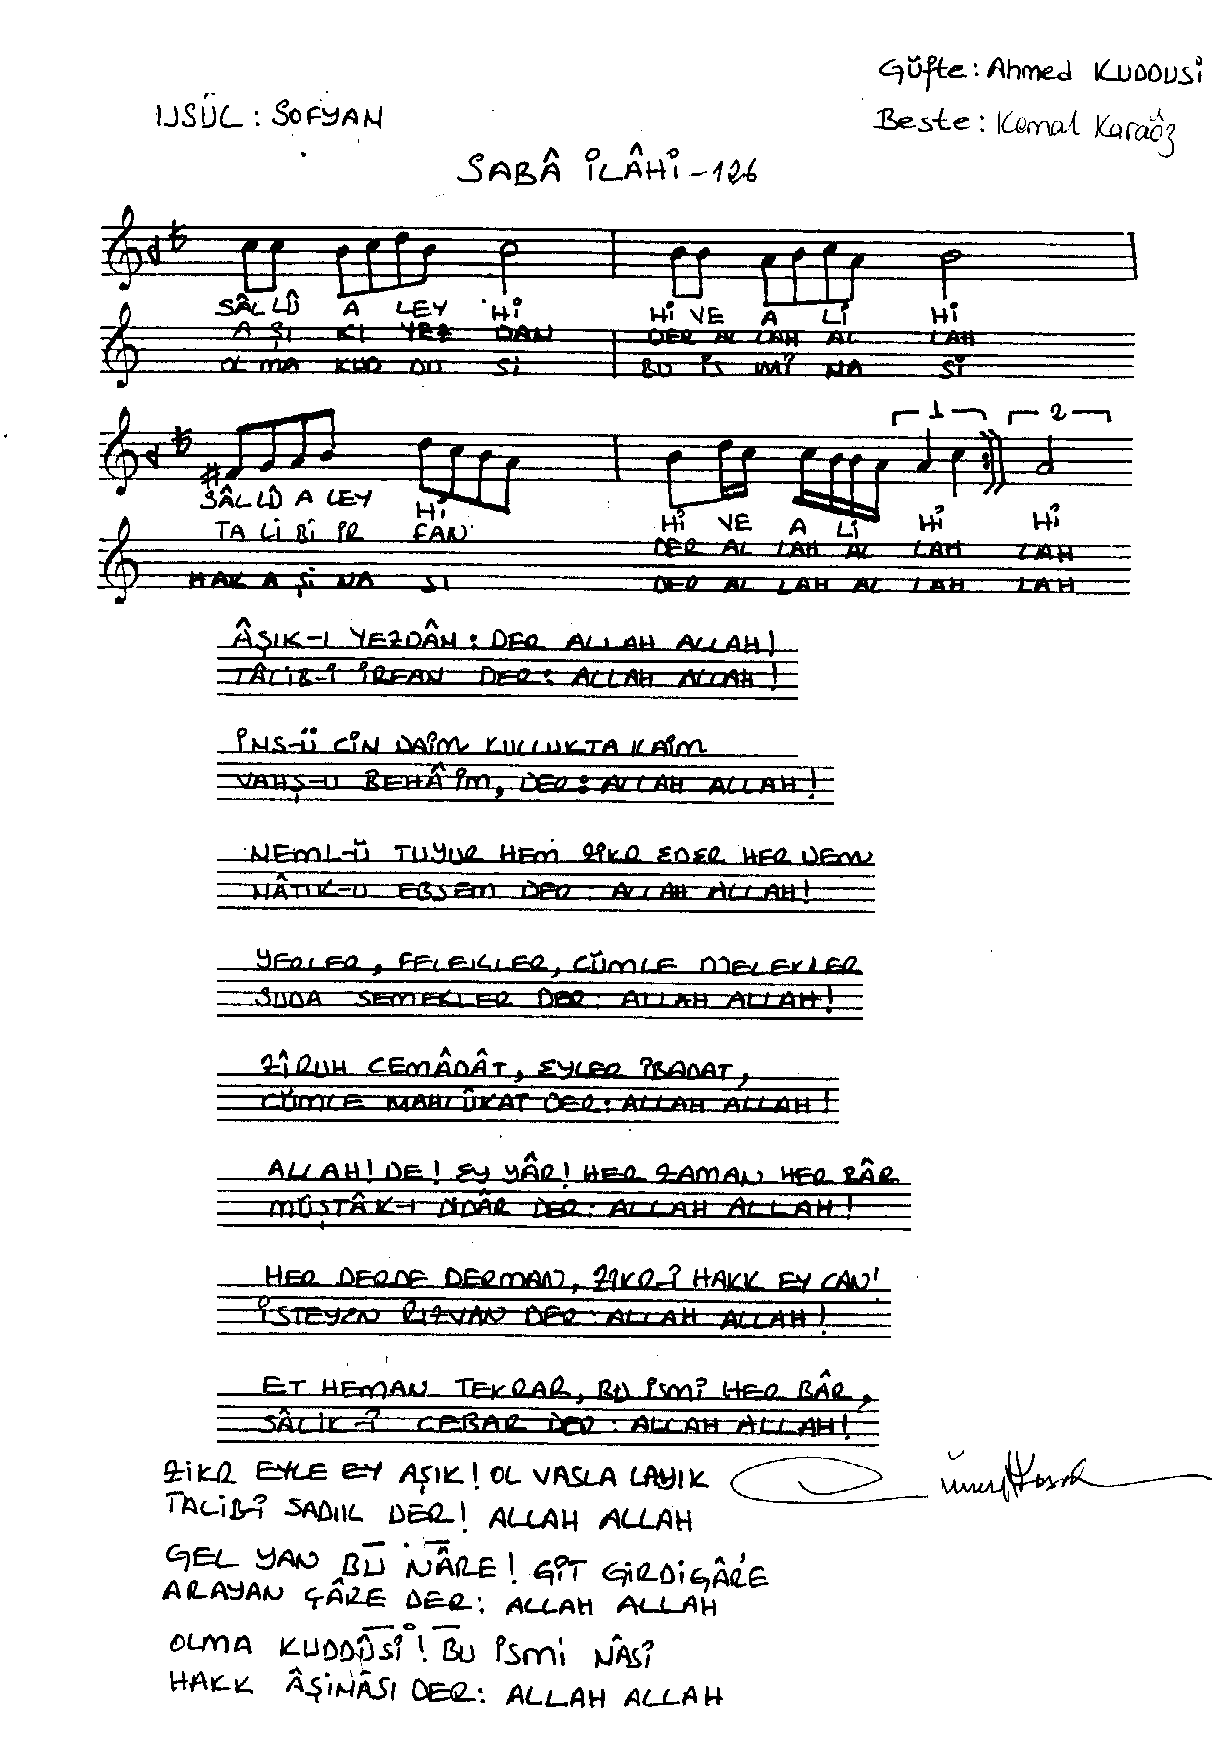 Güfte: Ahmed KUDDUSİ
USÜL: SOFYAN
Beste: Kemal Karaöz
SABÂ İLÂHİ-126
SÂL LÛ A LEY Hİ Hİ VE A Lİ Hİ
A ŞI KI YEZ DAN DER AL LAH AL LAH
OL MA KUD DU Sİ BU İS Mİ NA Sİ
1 2
SÂL LÛ A LEY Hİ Hİ VE A Lİ Hİ Hİ
TA Lİ Bİ İR FAN DER AL LAH AL LAH LAH
HAK A Şİ NA SI DER AL LAH AL LAH LAH
ÂŞIK-I YEZDÂN: DER ALLAH ALLAH!
TÂLİB-İ İRFAN DER: ALLAH ALLAH!
İNS-Ü CİN DAİM KULLUKTA KAİM
VAHŞ-U BEHÂİM, DER: ALLAH ALLAH!
NEML-Ü TUYUR HEM ZİKR EDER HER DEM
NÂTIK-U EBSEM DER: ALLAH ALLAH!
YERLER, FELEKLER, CÜMLE MELEKLER
SUDA SEMEKLER DER: ALLAH ALLAH!
ZÎRUH CEMÂDÂT, EYLER İBADAT,
CÜMLE MAHLÛKAT DER: ALLAH ALLAH!
ALLAH! DE! EY YÂR! HER ZAMAN HER BÂR
MÜŞTÂK-I DİDÂR DER: ALLAH ALLAH!
HER DERDE DERMAN, ZİKR-İ HAKK EY CAN!
İSTEYEN RIZVAN DER: ALLAH ALLAH!
ET HEMAN TEKRAR, BU İSMİ HER BÂR,
SÂLİK-İ CEBAR DER: ALLAH ALLAH!
ZİKR EYLE EY AŞIK! OL VASLA LAYIK
TALİB-İ SADIK DER! ALLAH ALLAH
GEL YAN BU NÂRE! GİT GİRDİGÂRE
ARAYAN ÇÂRE DER: ALLAH ALLAH
OLMA KUDDÛSÎ! BU İSMİ NÂSİ
HAKK ÂŞİNÂSI DER: ALLAH ALLAH